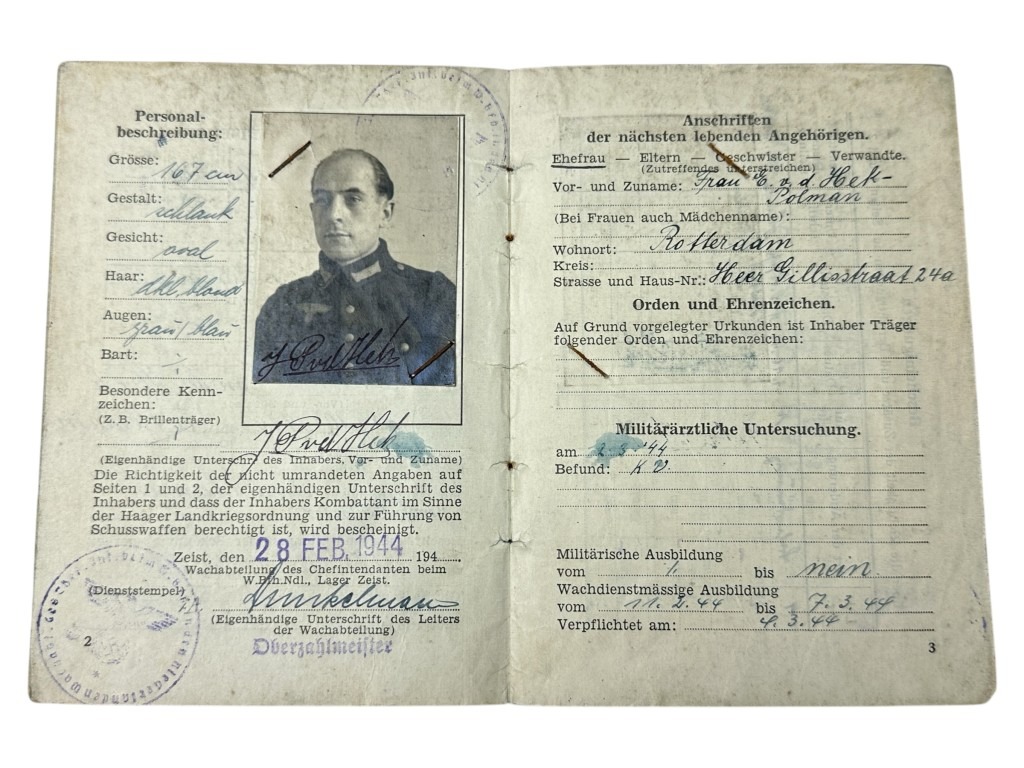 Personal-
beschreibung:
Grösse:
167 cm
Gestalt:
schlank
Gesicht:
oval
Haar:
dkl. blond
Augen:
grau/blau
Bart:
Besondere Kenn-
zeichen:
(Z. B. Brillenträger)
J Pvd Hek
J Pvd Hek
(Eigenhändige Unterschr. des Inhabers, Vor- und Zuname)
Die Richtigkeit der nicht umrandeten Angaben auf
Seiten 1 und 2, der eigenhändigen Unterschrift des
Inhabers und dass der Inhabers Kombattant im Sinne
der Haager Landkriegsordnung und zur Führung von
Schusswaffen berechtigt ist, wird bescheinigt.
Zeist, den 28 FEB. 1944 194
Wachabteilung des Chefintendanten beim
W.Bfh.Ndl., Lager Zeist.
(Dienststempel)
(Eigenhändige Unterschrift des Leiters
der Wachabteilung)
Oberzahlmeister
2
Anschriften
der nächsten lebenden Angehörigen.
Ehefrau — Eltern — Geschwister — Verwandte.
(Zutreffendes unterstreichen)
Vor- und Zuname: Frau E. v. d. Hek-
Polman
(Bei Frauen auch Mädchenname):
Wohnort: Rotterdam
Kreis:
Strasse und Haus-Nr.: Heer Gillisstraat 24a
Orden und Ehrenzeichen.
Auf Grund vorgelegter Urkunden ist Inhaber Träger
folgender Orden und Ehrenzeichen:
Militärärztliche Untersuchung.
am 2 3 '44
Befund: K V
Militärische Ausbildung
vom // bis nein
Wachdienstmässige Ausbildung
vom 11. 2. 44 bis 7. 3. 44
Verpflichtet am: 4. 3. 44
3